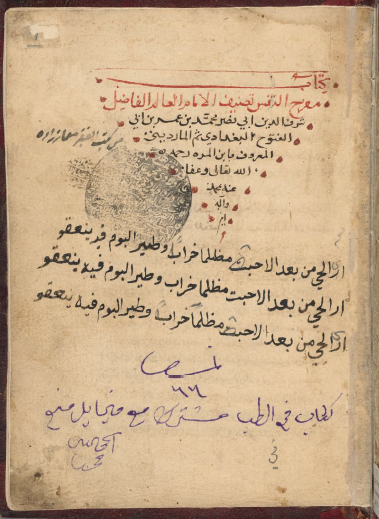 كتاب
مفرح النفس تصنيف الامام العالم الفاضل
شرف الدين ابي نصر محمد بن عمر بن ابي
الفتوح البغدادي ثم المارديني
المعروف بابن المره رحمه
الله تعالى وعفا
عنه بمحمد
واله
من كتب الفقير
ارى الحي من بعد الاحبة مظلما خرابا وطير البوم فيه ينعقو
ارى الحي من بعد الاحبت مظلما خراب وطير البوم فيه ينعقو
ارى الحي من بعد الاحبة مظلما خرابا وطير البوم فيه ينعقو
٦٦
كتاب في الطب مشترك مع ميخايل